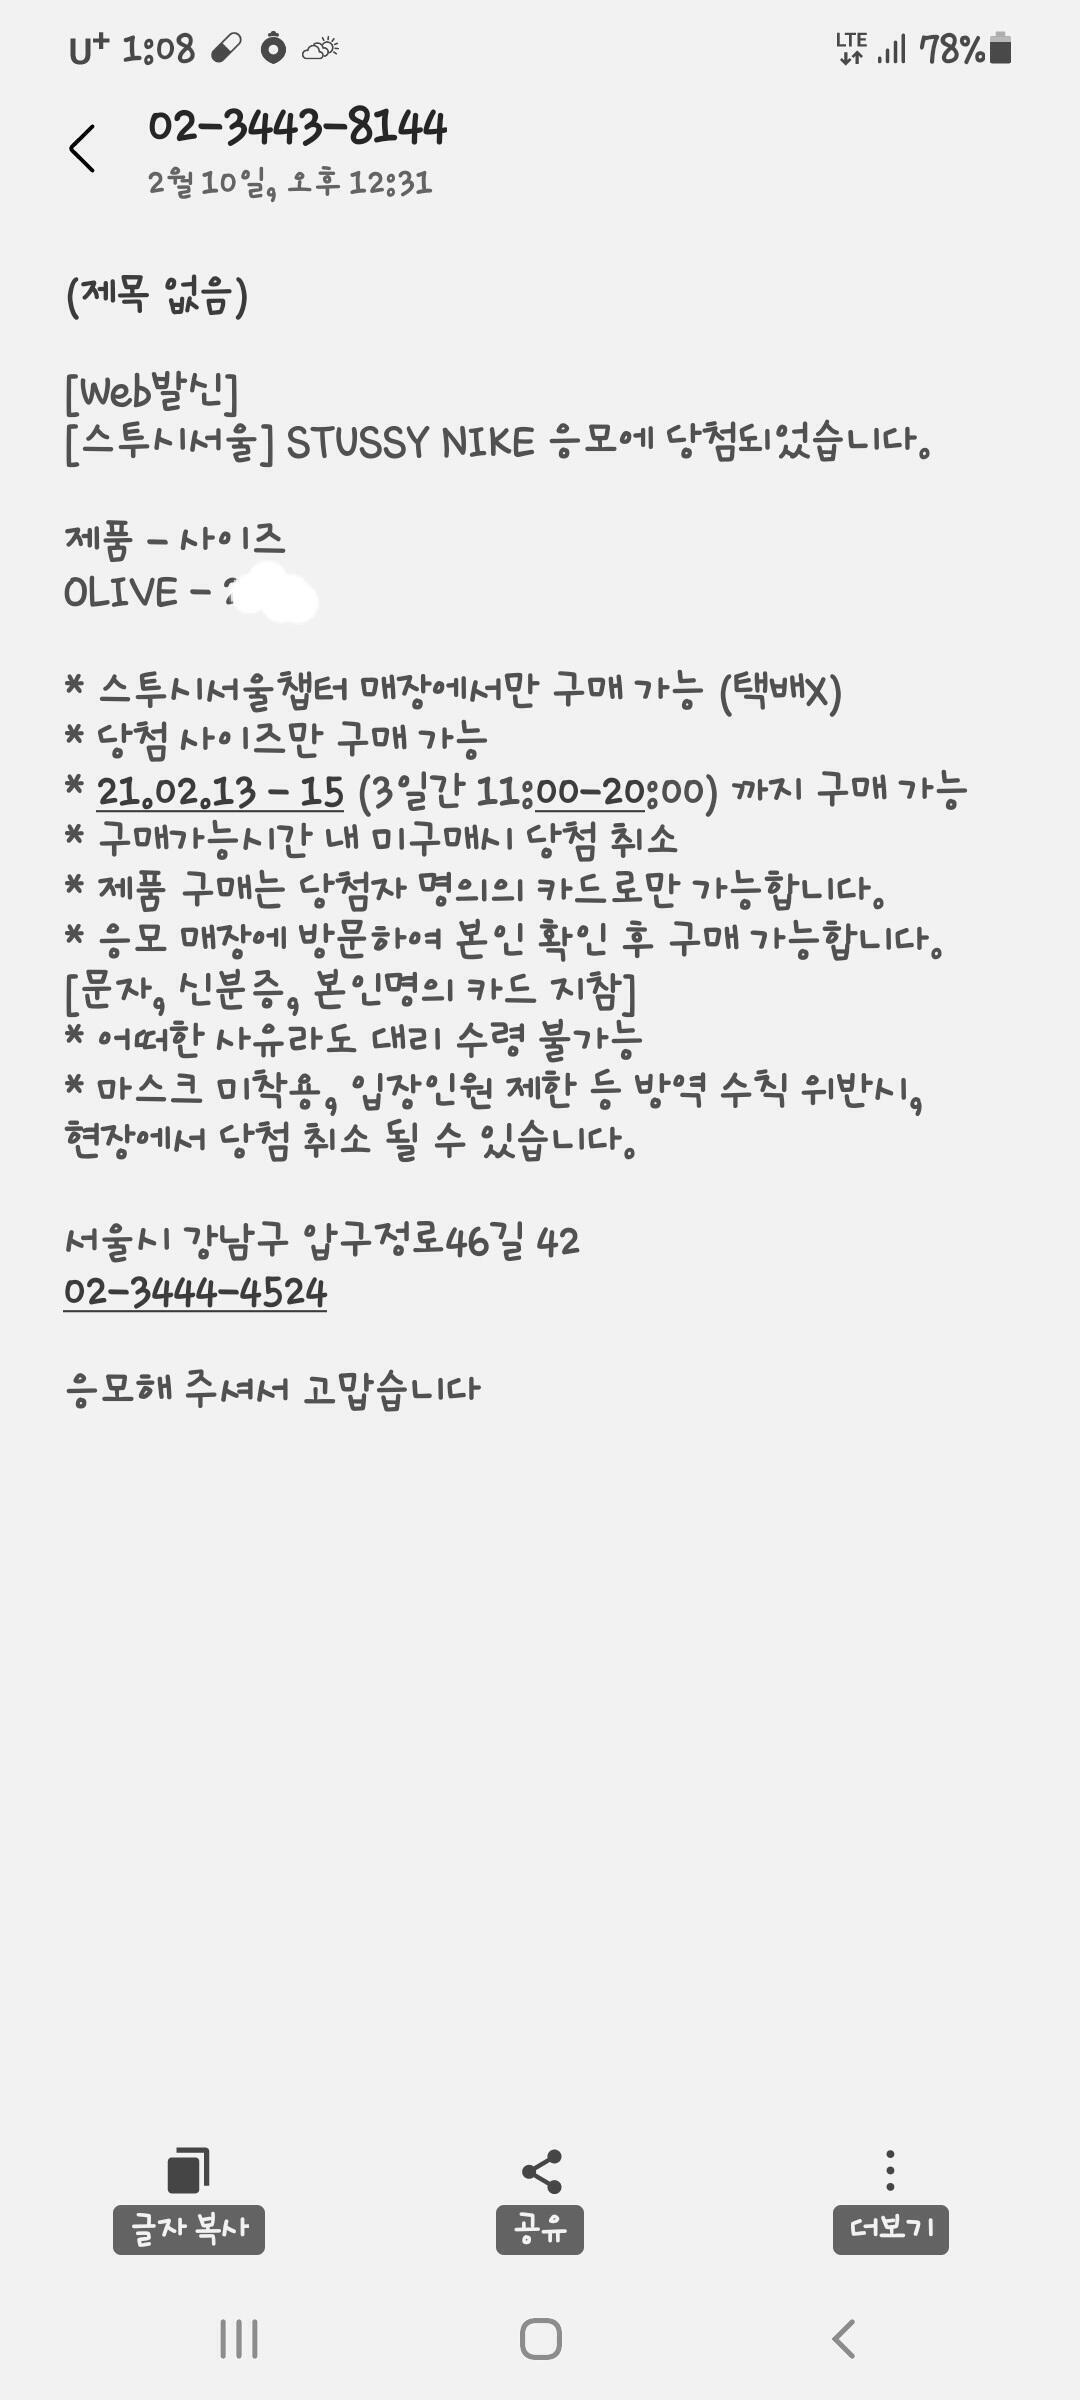 U+ 1:08 LTE 78%
02-3443-8144
2월 10일, 오후 12:31
(제목 없음)
[Web발신]
[스투시서울] STUSSY NIKE 응모에 당첨되었습니다.
제품 - 사이즈
OLIVE -
* 스투시서울챕터 매장에서만 구매 가능 (택배X)
* 당첨 사이즈만 구매 가능
* 21.02.13 - 15 (3일간 11:00-20:00) 까지 구매 가능
* 구매가능시간 내 미구매시 당첨 취소
* 제품 구매는 당첨자 명의의 카드로만 가능합니다.
* 응모 매장에 방문하여 본인 확인 후 구매 가능합니다.
[문자, 신분증, 본인명의 카드 지참]
* 어떠한 사유라도 대리 수령 불가능
* 마스크 미착용, 입장인원 제한 등 방역 수칙 위반시,
현장에서 당첨 취소 될 수 있습니다.
서울시 강남구 압구정로46길 42
02-3444-4524
응모해 주셔서 고맙습니다
글자 복사 공유 더보기